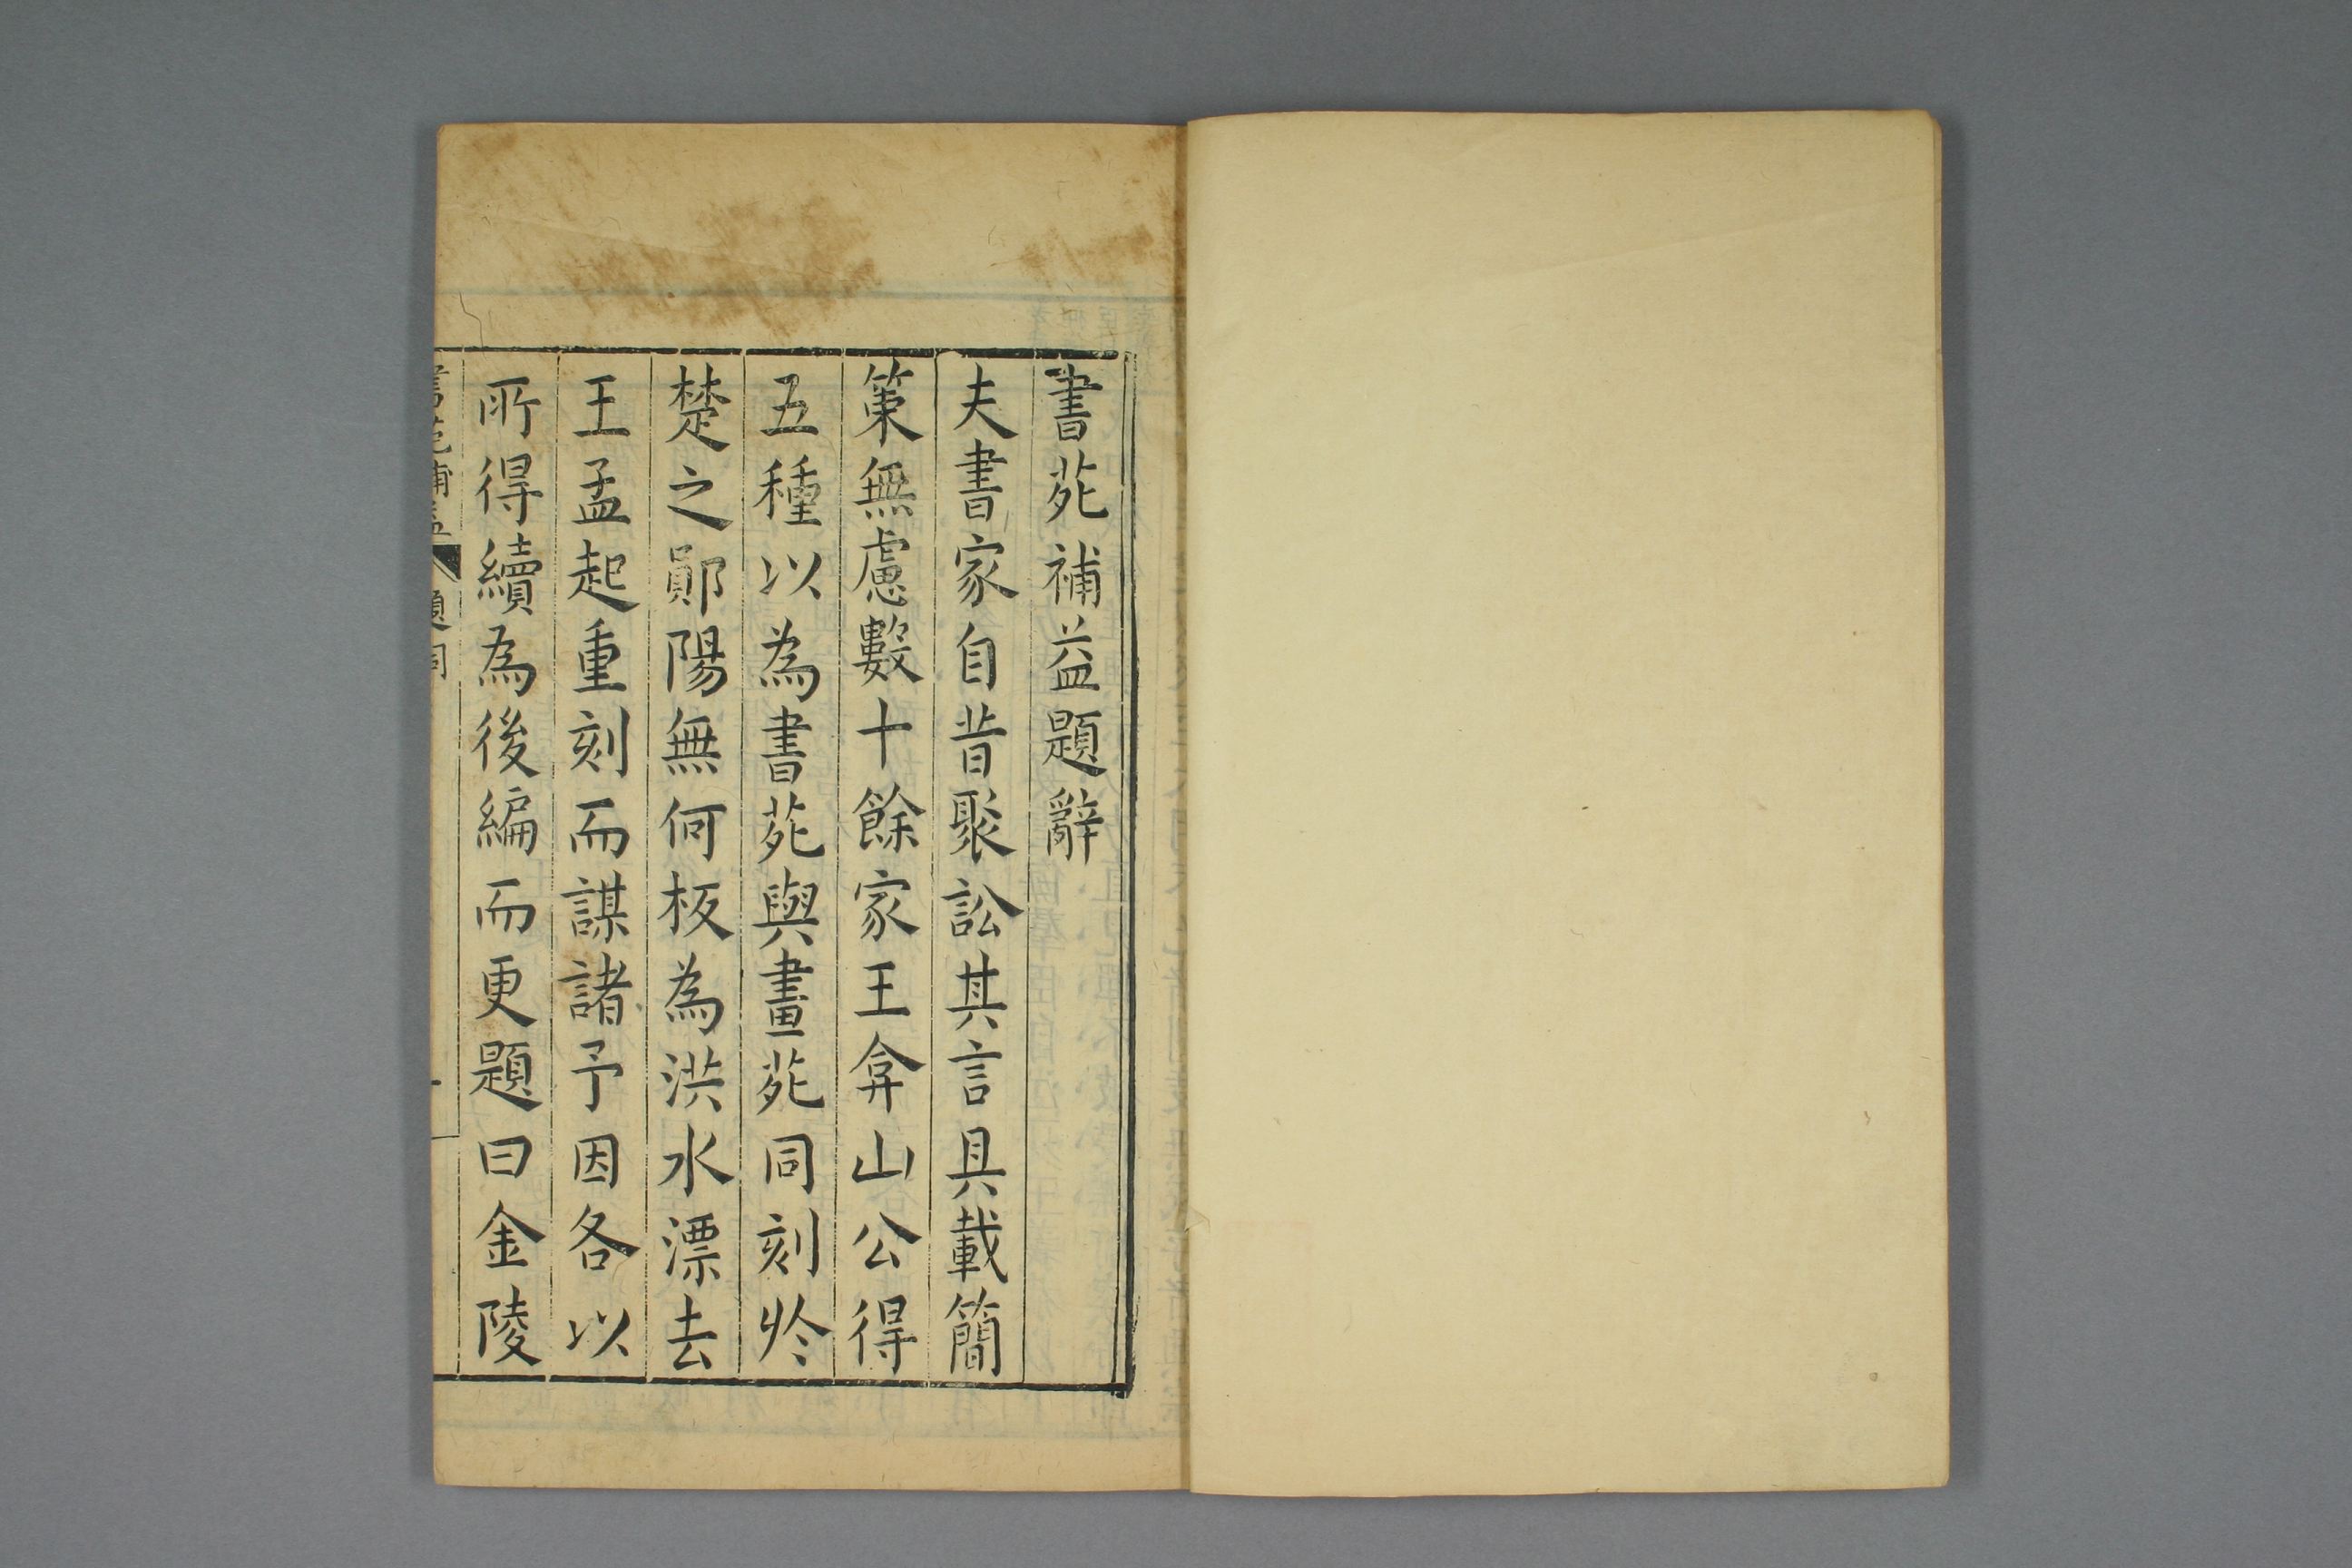 書苑補益題辭
夫書家自昔聚訟其言具載簡
策無慮數十餘家王弇山公得
五種以為書苑與畫苑同刻於
楚之鄖陽無何板為洪水漂去
王孟起重刻而謀諸予因各以
所得續為後編而更題曰金陵
書苑補益 題詞 一